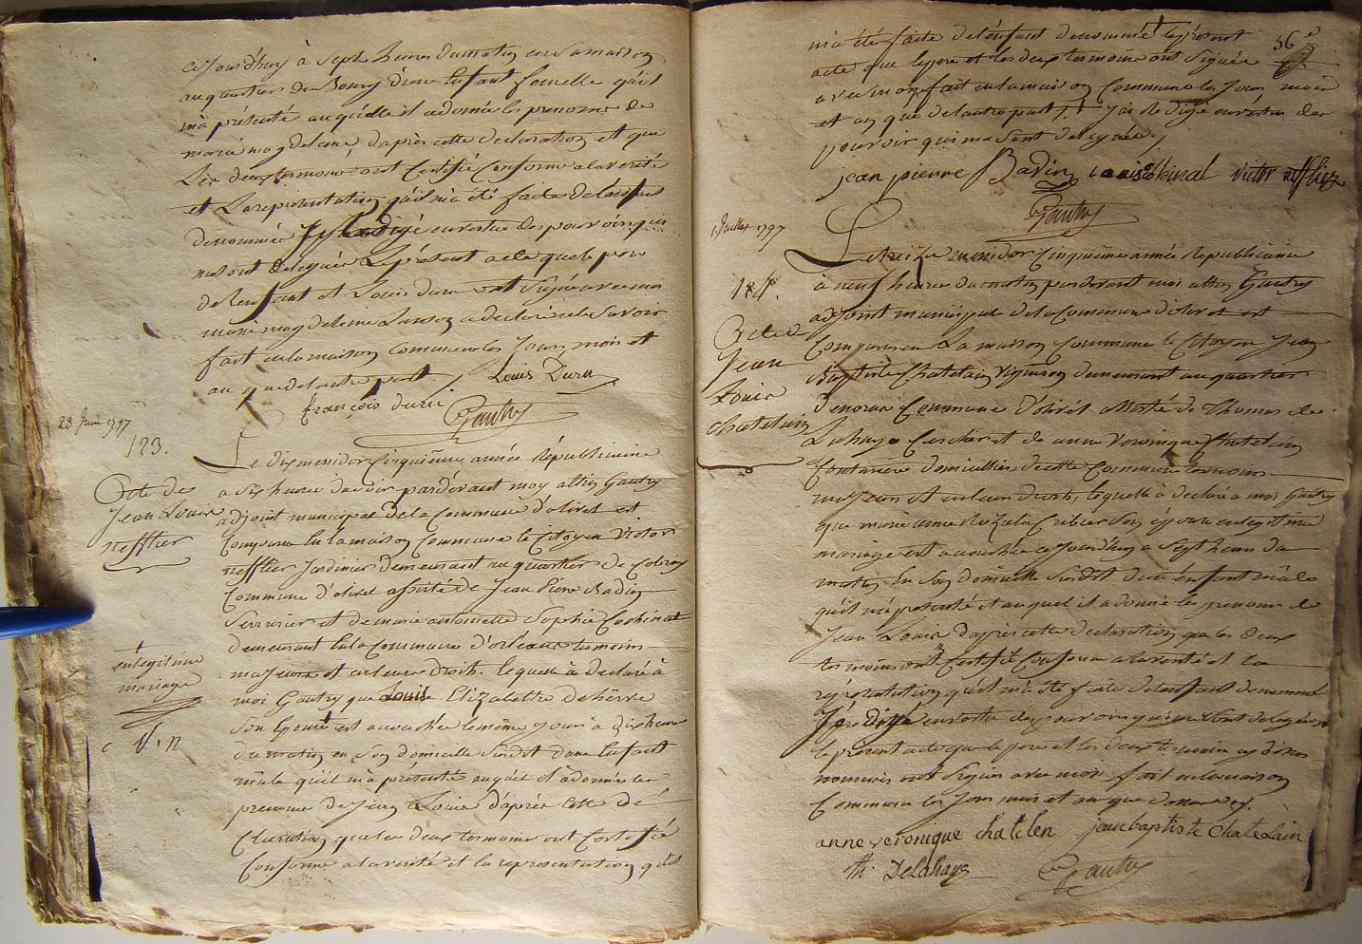 ce Jourd'huy à Sept heures du matin en sa maison
au quartier du Bourg d'une Enfant femelle qu'il
m'a présenté auquelle il a donné les prenoms de
marie magdeleine d'après cette declaration et que
Les deux temoins ont Certifié Conforme a la verité
et La representation qu'il m'a été faite de l'enfant
denommée J'ai Redigé en vertu des pouvoirs qui
me sont delegués Le présent acte que le pere
de l'enfant et Louis Duru ont Signé avec moi
marie magdeleine a declaré ne le Savoir
fait en la maison Commune les Jours, mois et
an que de l'autre part
Louis Duru
françois duru
Gautry
23 Juin 1797
123.
Acte de
Jean Louis
nefflier
Le dix messidor Cinquième année Républicaine
a Six heures du soir pardevant moy Gautry
adjoint municipal de la Commune d'olivet est
Comparu En la maison Commune le Citoyen Victor
nefflier Jardinier demeurant au quartier de
Commune d'olivet assisté de Jean Pierre Badin
Serrurier et de marie antoinette Sophie
demeurant En la Commune d'orleans temoins
majeurs et en leurs droits. lequel à declaré à
moi Gautry que Louise Elizabethe
Son Epouse † est accouchée le même jour à dix heures
du matin en Son domicille Susdit d'une Enfant
mâle qu'il m'a présenté auquel il a donné les
prenoms de Jean Louis d'après cette dé-
Claration que les deux temoins ont Certifié
Conforme a la verité et la representation qu'il
†
en legitime
mariage
36e
m'a été faite de l'enfant denommé J'ai le present
acte que le pere et les deux temoins ont Signé
avec moi fait en la maison Commune les Jour, mois
et an que de l'autre part, J'ai Redigé en vertu des
pouvoir qui me sont delegués
jean pierre Badin victor neffliez
Gautry
1 Juillet 1797
124.
Acte de
Jean
Louis
Chatelain
Le treize messidor Cinquième année Republicaine
à neuf heures du matin pardevant moi Gautry
adjoint municipal de la Commune d'olivet est
Comparu en La maison Commune le Citoyen Jean
Baptiste Chatelain Vigneron demeurant au quartier
Commune d'olivet assisté de Thomas de
Lahaye et de anne Veronique Chatelain
Couturiere domicilliés de cette Commune temoins
majeurs et en leurs droits, lequel à declaré a moi Gautry
que marie anne Son épouse en legitime
mariage est accouchée ce Jourd'huy a Sept heures du
matin En Son domicille Susdit d'un énfant mâle
qu'il m'a présenté et auquel il a donné les prenoms de
Jean Louis d'après cette declaration que les deux
temoins ont Certifié Conforme a la verité et la
représentation qu'il m'a été faite de l'enfant denommé
J'ai redigé en vertu des pouvoirs qui me sont delegués
le présent acte que le pere et les deux temoins cy dessus
nommés ont Signés avec moi, fait en la maison
Commune les Jour mois et an que
anne veronique chatelen jean baptiste chatelain
th. Delahaye Gautry